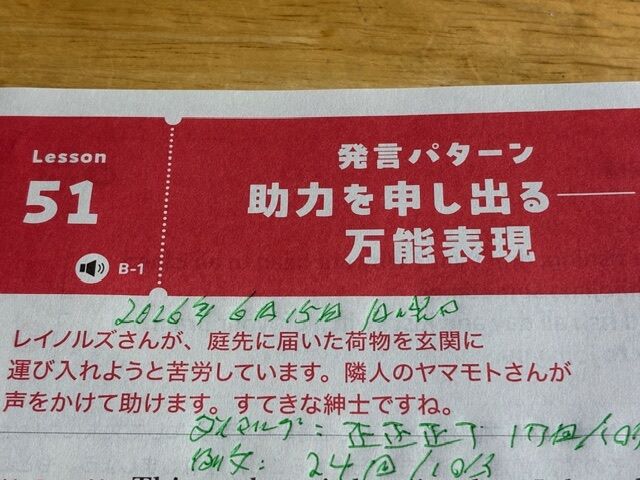 Lesson
51
B-1
発言パターン
助力を申し出る
万能表現
2026年 6月15日
レイノルズさんが、庭先に届いた荷物を玄関に
運び入れようと苦労しています。隣人のヤマモトさんが
声をかけて助けます。すてきな紳士ですね。
正正正丁 17回/10分
例文: 24回/10分